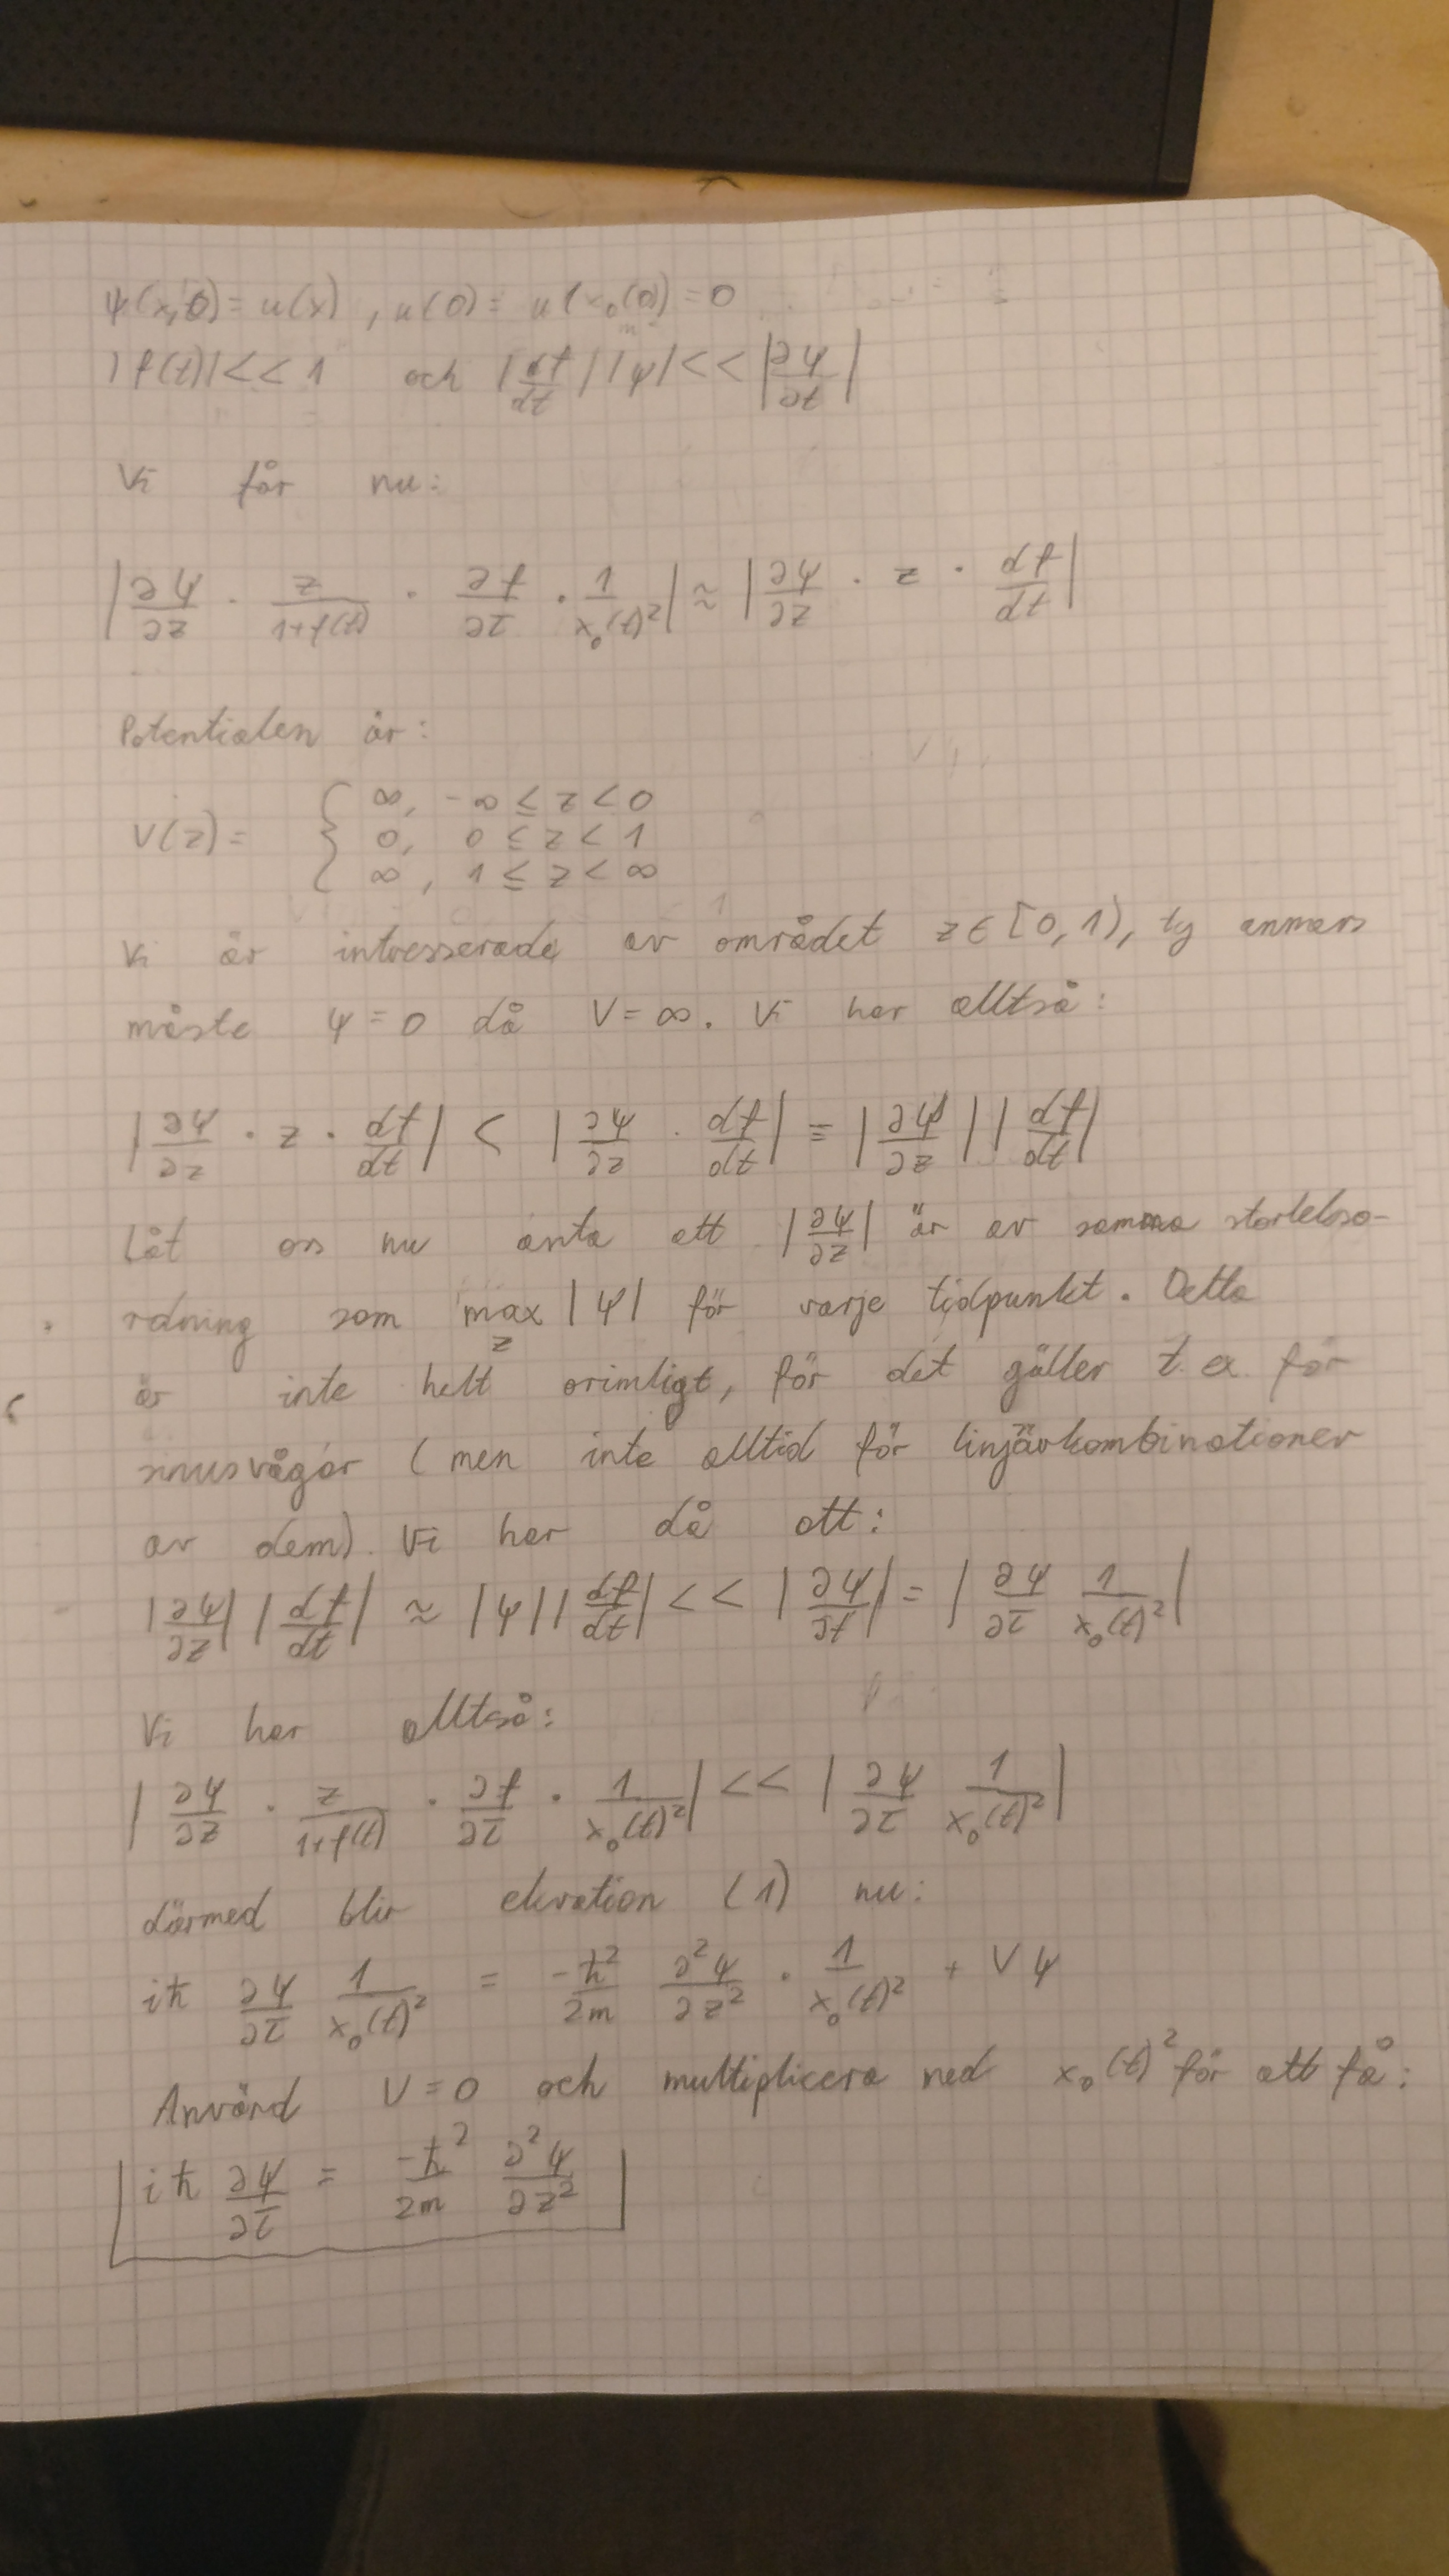 ψ(x,0) = u(x), u(0) = u(x₀(0)) = 0
|f(t)| << 1 och |df/dt| |ψ| << |∂ψ/∂t|
Vi får nu:
|∂ψ/∂z · z/(1+f(t)) · ∂f/∂τ · 1/x₀(t)²| ≈ |∂ψ/∂z · z · df/dt|
Potentialen är:
V(z) = { ∞, -∞ ≤ z < 0
0, 0 ≤ z < 1
∞, 1 ≤ z < ∞
Vi är intresserade av området z ∈ [0,1), ty annars
måste ψ = 0 då V = ∞. Vi har alltså:
|∂ψ/∂z · z · df/dt| < |∂ψ/∂z · df/dt| = |∂ψ/∂z| |df/dt|
Låt oss nu anta att |∂ψ/∂z| är av samma storlekso-
rdning som max_z |ψ| för varje tidpunkt. Detta
är inte helt orimligt, för det gäller t.ex. för
sinusvågor (men inte alltid för linjärkombinationer
av dem). Vi har då att:
|∂ψ/∂z| |df/dt| ≈ |ψ| |df/dt| << |∂ψ/∂t| = |∂ψ/∂τ 1/x₀(t)²|
Vi har alltså:
|∂ψ/∂z · z/(1+f(t)) · ∂f/∂τ · 1/x₀(t)²| << |∂ψ/∂τ 1/x₀(t)²|
därmed blir ekvation (1) nu:
iħ ∂ψ/∂τ 1/x₀(t)² = -ħ²/2m ∂²ψ/∂z² · 1/x₀(t)² + Vψ
Använd V = 0 och multiplicera med x₀(t)² för att få:
iħ ∂ψ/∂τ = -ħ²/2m ∂²ψ/∂z²